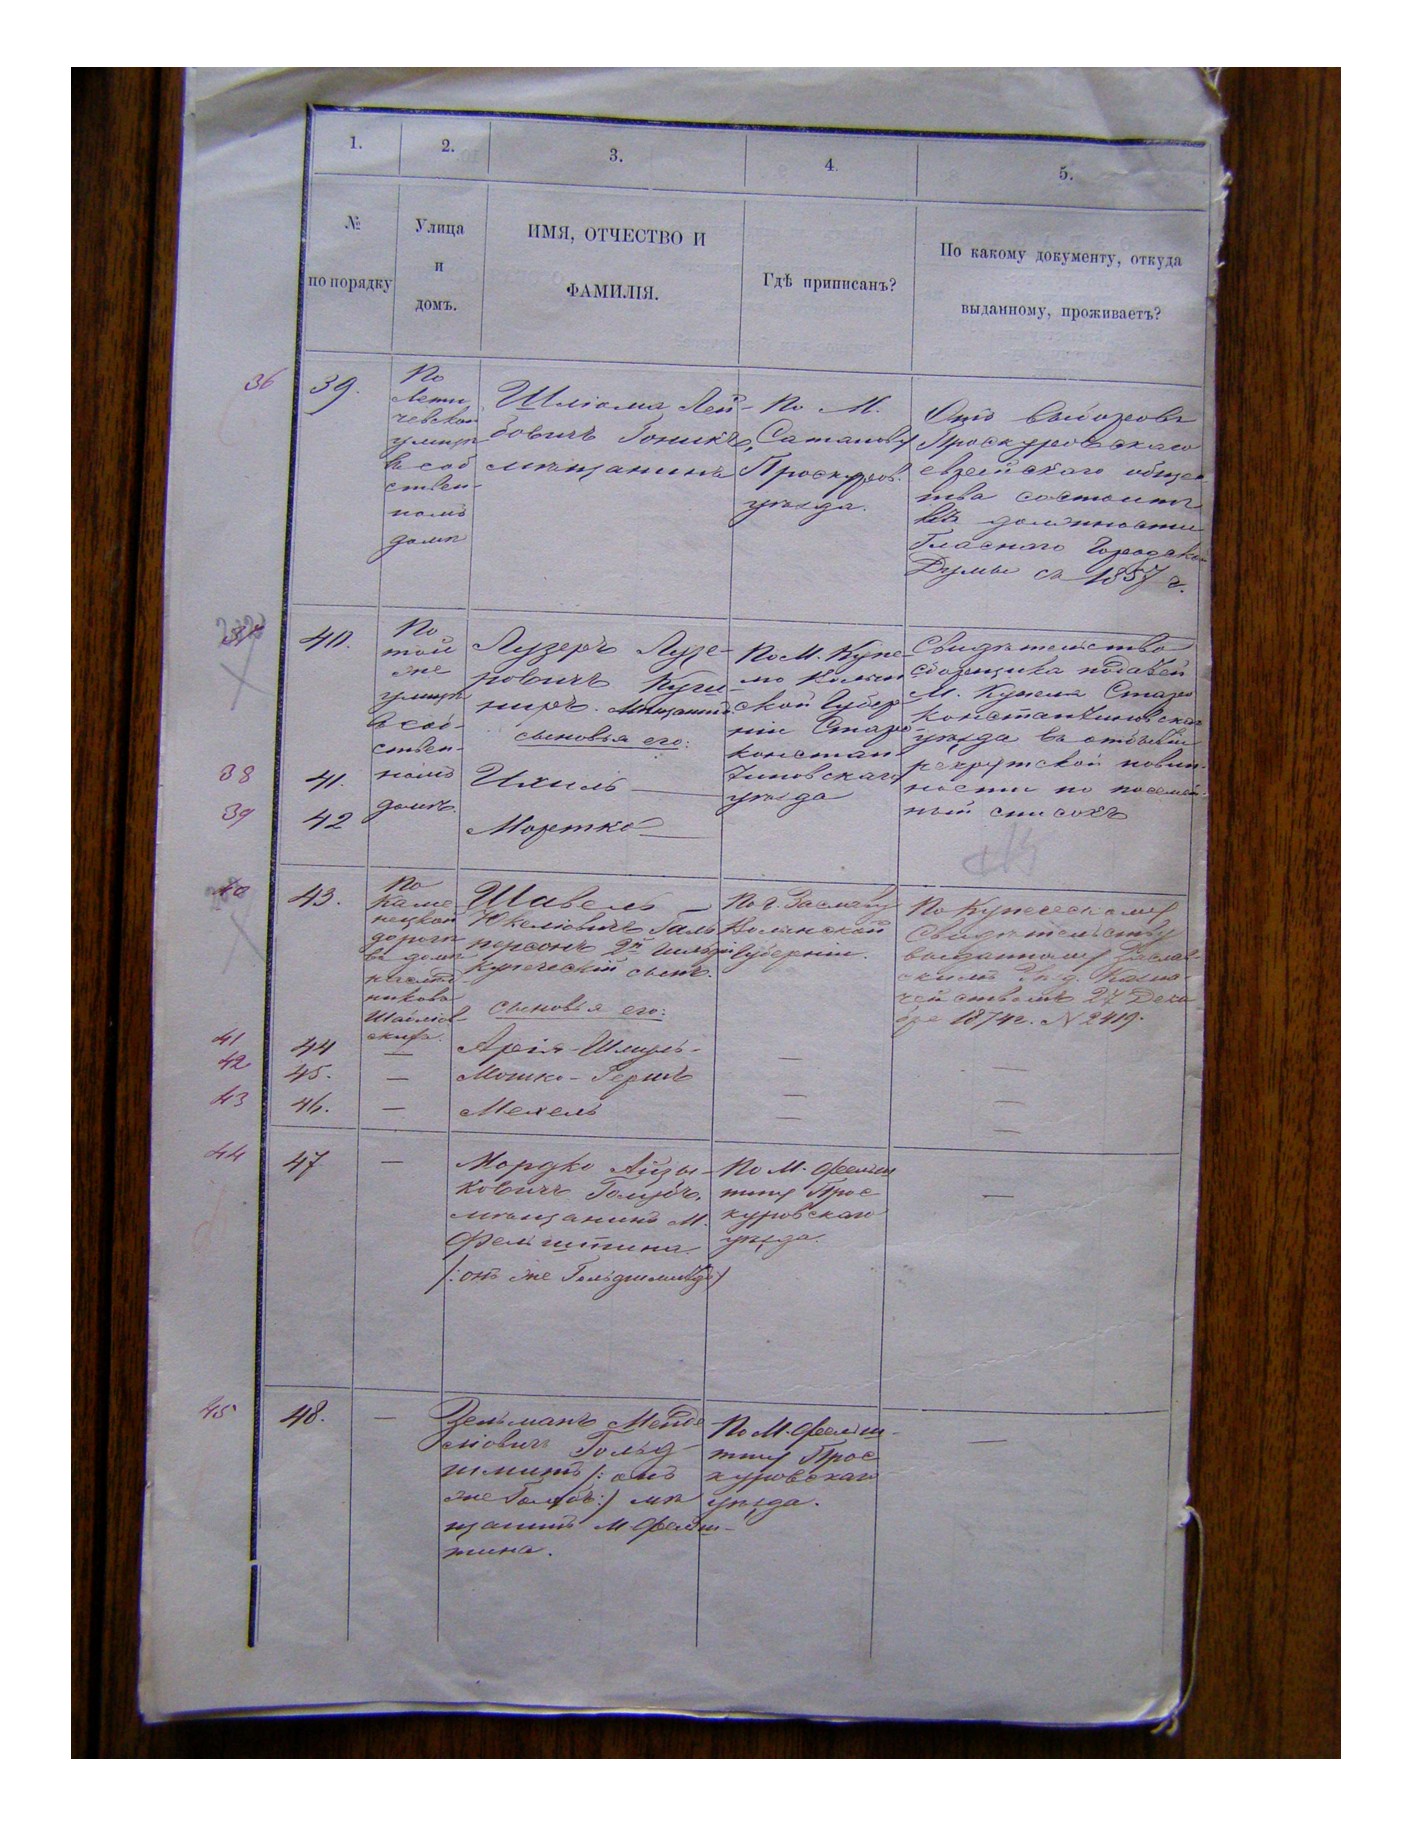 1.
2.
3.
4.
5.
№
по порядку
Улица
и
домъ.
ИМЯ, ОТЧЕСТВО И
ФАМИЛІЯ.
Гдѣ приписанъ?
По какому документу, откуда
выданному, проживаетъ?
36
39.
По
Лети
чевской
улицѣ
въ соб
ствен-
номъ
домѣ
Шліома Лей-
бовичъ Гоникъ,
мѣщанинъ
По М.
Сатанову
Проскуров.
уѣзда.
Отъ выборовъ
Проскуровскаго
еврейскаго общес
тва состоитъ
въ должности
Гласнаго Городской
Думы съ 1857 г.
40.
По
той
же
улицѣ
въ соб-
ствен-
номъ
домѣ.
Лузеръ Лузе-
ровичъ
мѣщанинъ
сыновья его:
По М. Купе-
лю Волын
ской Губер
ніи Старо-
констан
тиновскаго
уѣзда
Свидѣтельство
сборщика податей
М. Купеля Старо
константиновскаго
уѣзда въ отбытіи
рекрутской повин-
ности по посемей-
ный списокъ
38
41.
Ихиль
39
42
Мортко
40
43.
По
Каме
нецкой
дорогѣ
въ домѣ
наслѣд
никовъ
Шавель
Юкелювичъ Галь
персонъ 2й гильдіи
купеческій сынъ.
сыновья его:
По г. Заславу
Волынской
Губерніи.
По Купеческому
Свидѣтельству
выданному Заслав-
скимъ Уѣзд. Казна-
чействомъ 27 Дека
бря 1874 г. N 2419.
41
44
—
Арія-Шмуль-
—
—
42
45.
—
Мошко-Гершъ
—
—
43
46.
—
Мехель
—
—
44
47
—
Мордко Айзы-
ковичъ Голубъ,
мѣщанинъ М.
Фельштина.
/: онъ же Гольдшмидъ:/
По М. Фельш
тину Прос
куровскаго
уѣзда.
—
45
48.
—
Зельманъ Менде
лювичъ Гольд-
шмитъ /: онъ
же Голубъ:/ мѣ
щанинъ М Фельш-
тина.
По М. Фельш-
тину Прос
куровскаго
уѣзда.
—